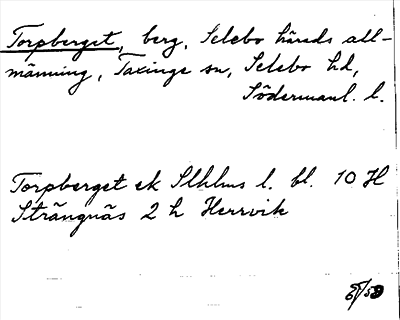 Torpberget, berg, Selebo härads all-
männing, Taxinge sn, Selebo hd,
Södermanl. l.
Torpberget ek Sthlms l. bl. 10 H
Strängnäs 2 h Herrvik